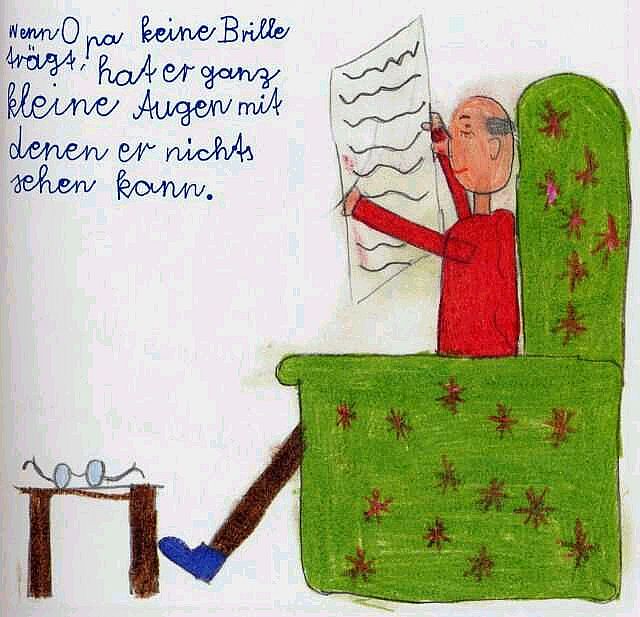 Wenn Opa keine Brille
trägt, hat er ganz
kleine Augen mit
denen er nichts
sehen kann.